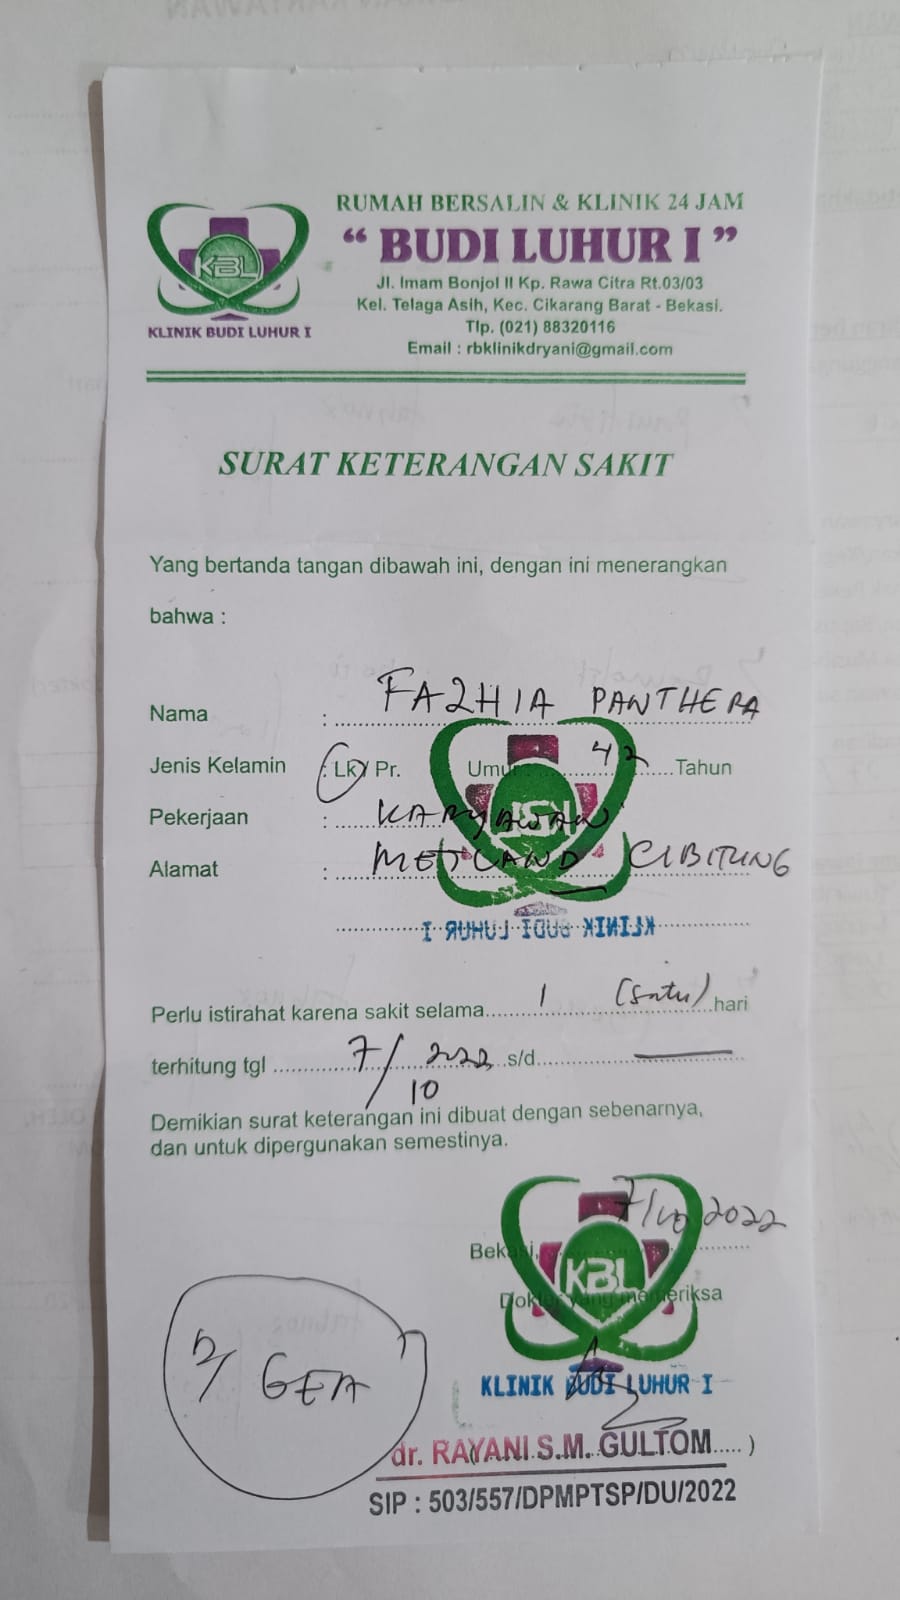 RUMAH BERSALIN & KLINIK 24 JAM
“ BUDI LUHUR I ”
Jl. Imam Bonjol II Kp. Rawa Citra Rt.03/03
Kel. Telaga Asih, Kec. Cikarang Barat - Bekasi.
Tlp. (021) 88320116
Email : rbklinikdryani@gmail.com
KBL
KLINIK BUDI LUHUR I
SURAT KETERANGAN SAKIT
Yang bertanda tangan dibawah ini, dengan ini menerangkan
bahwa :
Nama : FAZHIA PANTHERA
Jenis Kelamin : Lk / Pr. Umur : 42 Tahun
Pekerjaan : KARYAWAN
Alamat : METLAND CIBITUNG
KLINIK BUDI LUHUR I
Perlu istirahat karena sakit selama 1 (satu) hari
terhitung tgl 7/10 2022 s/d —
Demikian surat keterangan ini dibuat dengan sebenarnya,
dan untuk dipergunakan semestinya.
Bekasi, 7/10 2022
Dokter yang memeriksa
KBL
KLINIK BUDI LUHUR I
GEA
dr. RAYANI S.M. GULTOM )
SIP : 503/557/DPMPTSP/DU/2022